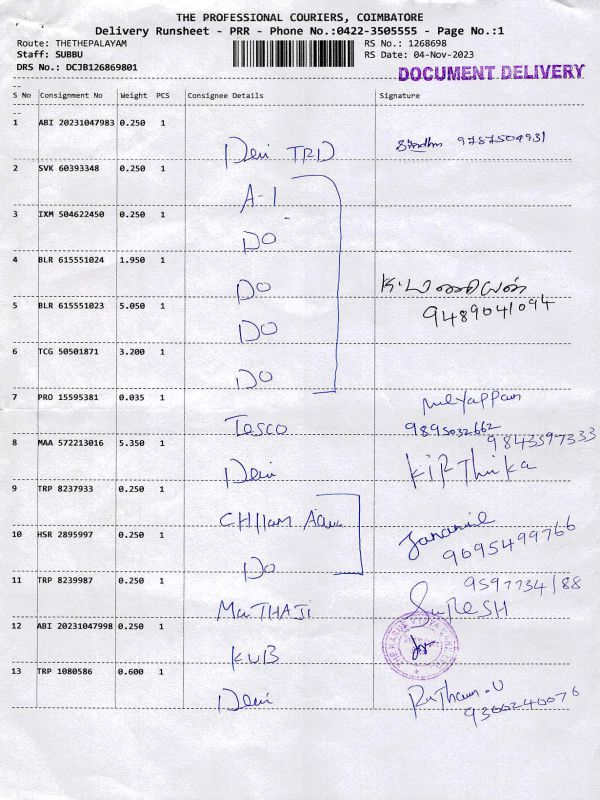 THE PROFESSIONAL COURIERS, COIMBATORE
Delivery Runsheet - PRR - Phone No.:0422-3505555 - Page No.:1
Route: THETHEPALAYAM RS No.: 1268698
Staff: SUBBU RS Date: 04-Nov-2023
DRS No.: DCJB126869801
DOCUMENT DELIVERY
S No Consignment No Weight PCS Consignee Details Signature
1 ABI 20231047983 0.250 1
Devi TRD 9787504931
2 SVK 60393348 0.250 1
A-1
3 IXM 504622450 0.250 1
DO
4 BLR 615551024 1.950 1
DO
5 BLR 615551023 5.050 1
9489041094
DO
6 TCG 50501871 3.200 1
DO
7 PRO 15595381 0.035 1
Tesco 9895032662
8 MAA 572213016 5.350 1 9843597333
Devi KIRThika
9 TRP 8237933 0.250 1
10 HSR 2895997 0.250 1
9095499766
DO
11 TRP 8239987 0.250 1 9597734188
MaTHAJI SURESH
12 ABI 20231047998 0.250 1
KUB
13 TRP 1080586 0.600 1
Devi